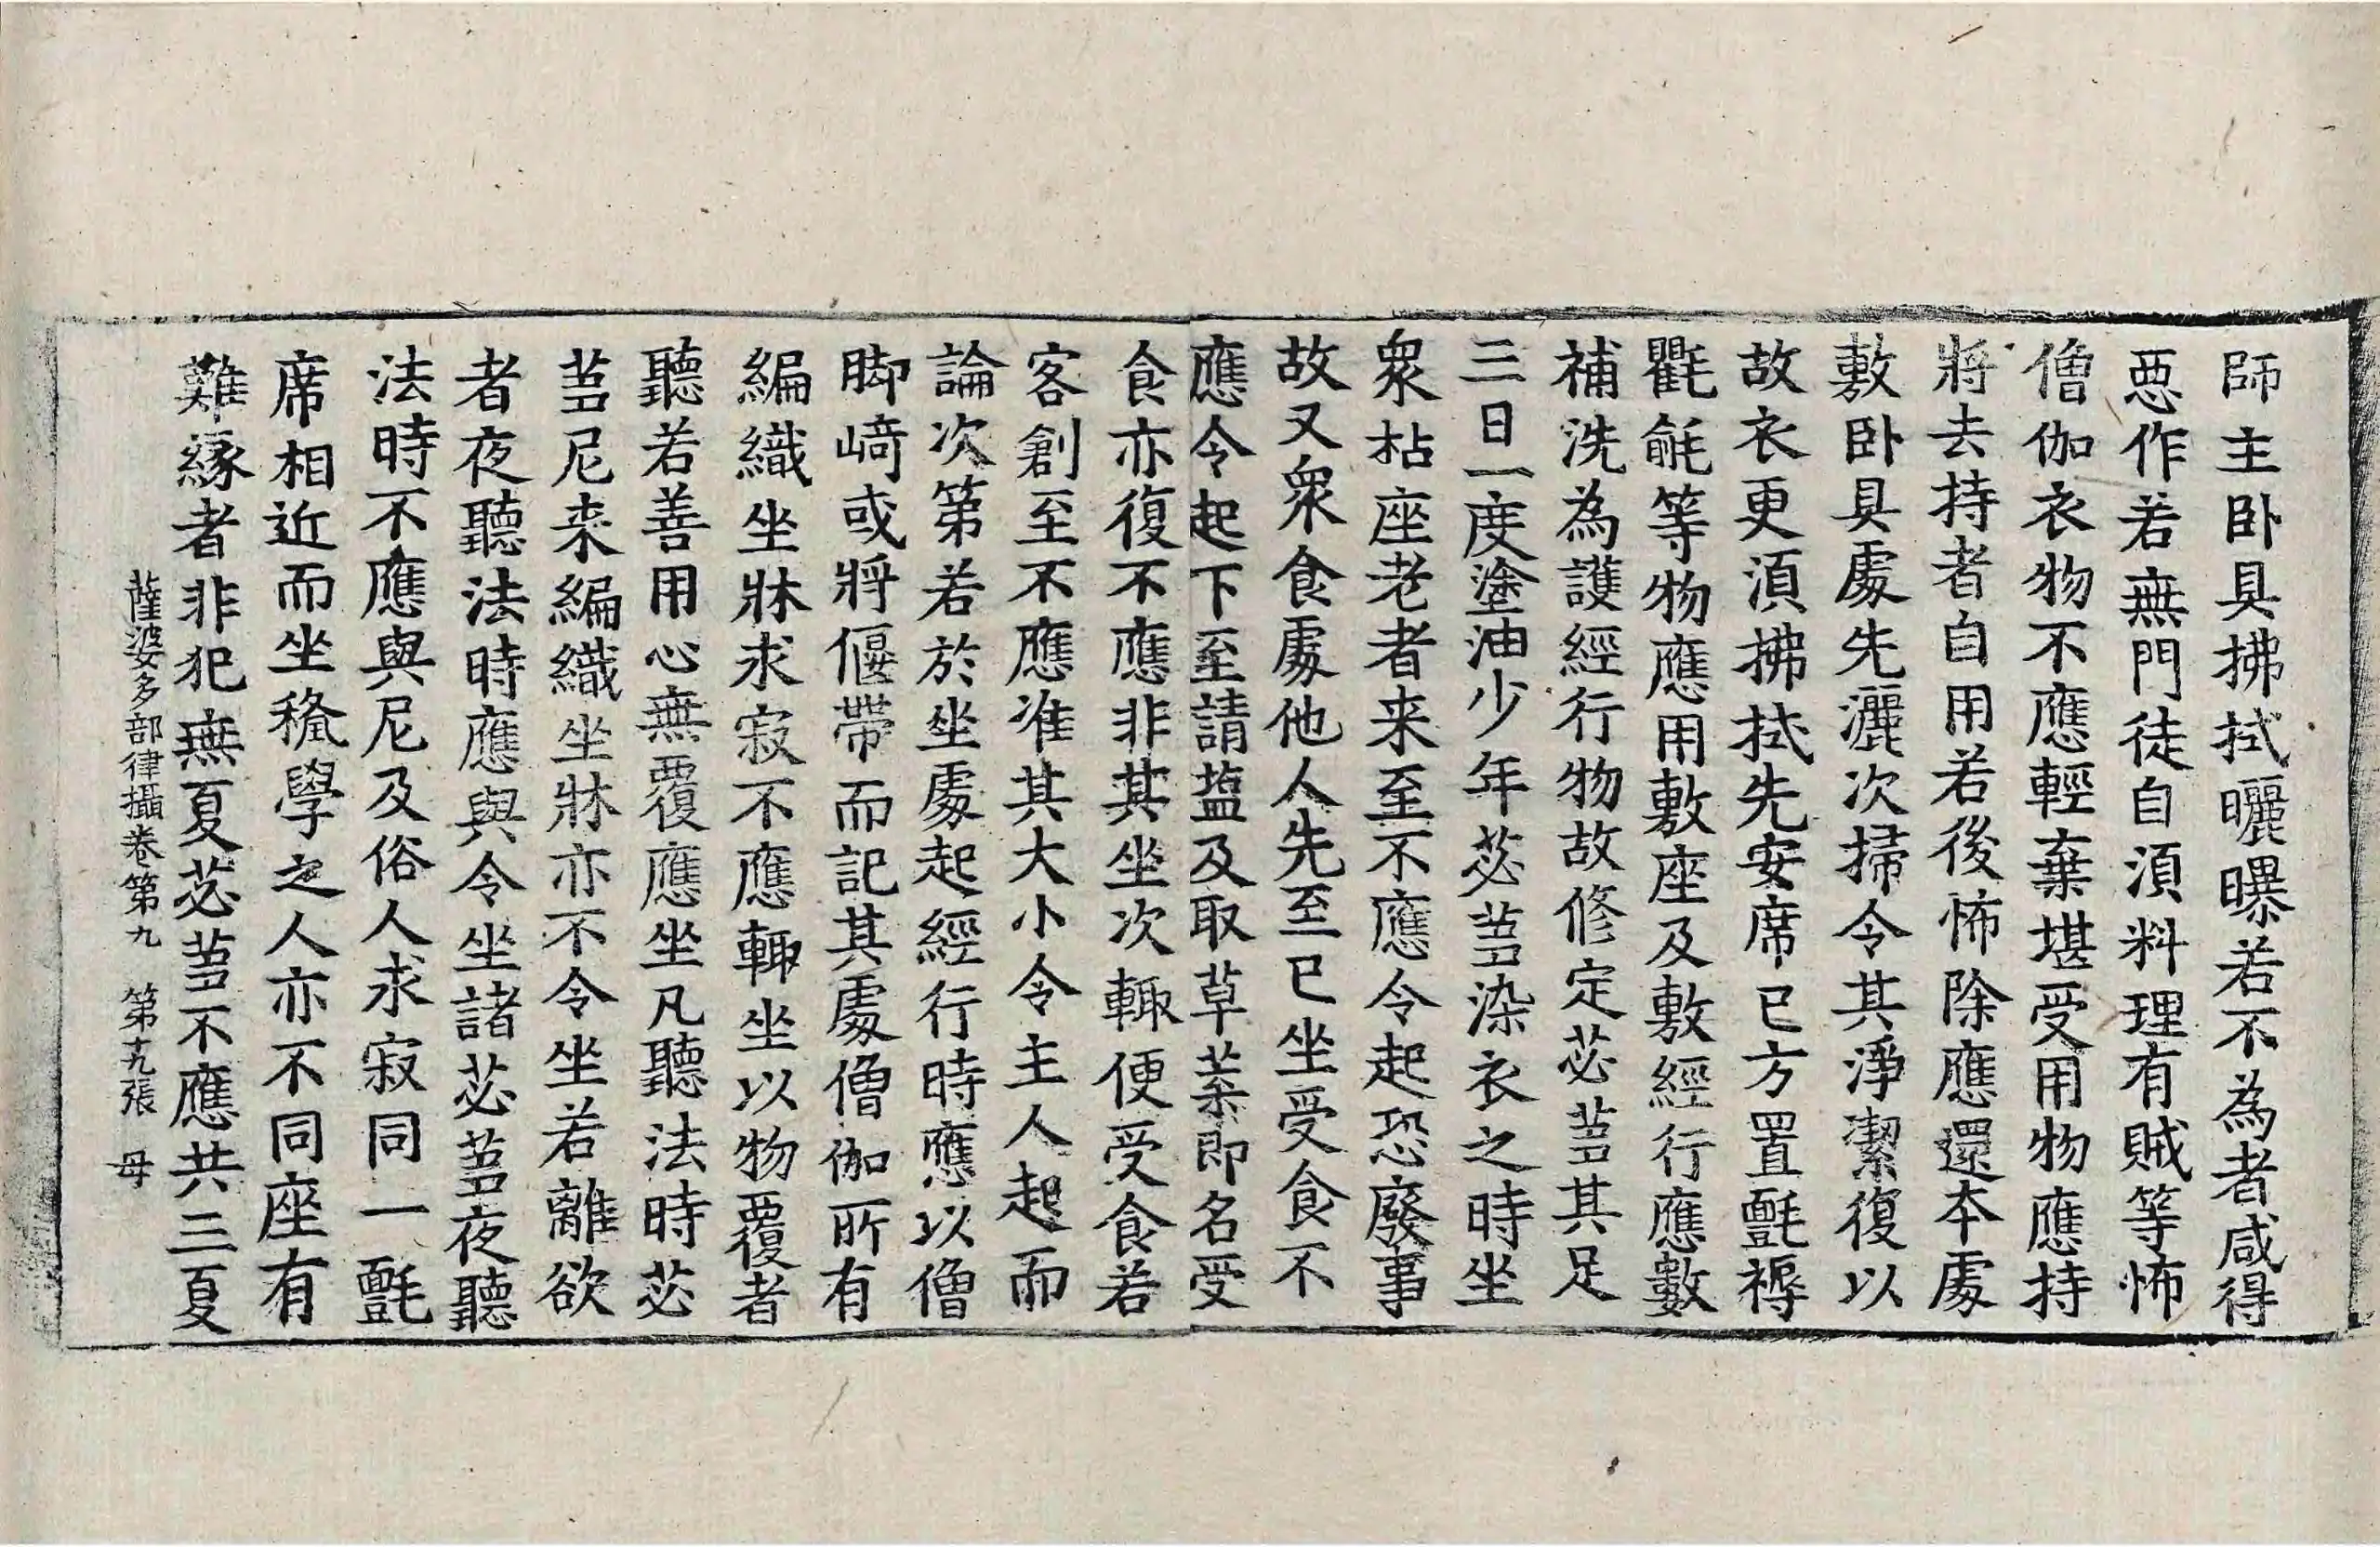 師主卧具拂拭曬曝若不為者咸得
惡作若無門徒自湏料理有賊等怖
僧伽衣物不應輕棄堪受用物應持
將去持者自用若後怖除應還本處
敷卧具處先灑次掃令其淨潔復以
故衣更湏拂拭先安席已方置氈褥
氍毹等物應用敷座及敷經行應數
補洗為護經行物故修定苾芻其足
三日一度塗油少年苾芻染衣之時坐
衆枯座老者来至不應令起恐廢事
故又衆食處他人先至已坐受食不
應令起下至請塩及取草葉即名受
食亦復不應非其坐次輙便受食若
客創至不應准其大小令主人起而
論次第若於坐處起經行時應以僧
脚﨑或將偃帶而記其處僧伽所有
編織坐牀求寂不應輙坐以物覆者
聽若善用心無覆應坐凡聽法時苾
芻尼来編織坐牀亦不令坐若離欲
者夜聽法時應與令坐諸苾芻夜聽
法時不應與尼及俗人求寂同一氈
席相近而坐稺學之人亦不同座有
難緣者非犯無夏苾芻不應共三夏
薩婆多部律攝卷第九　第十九張　母